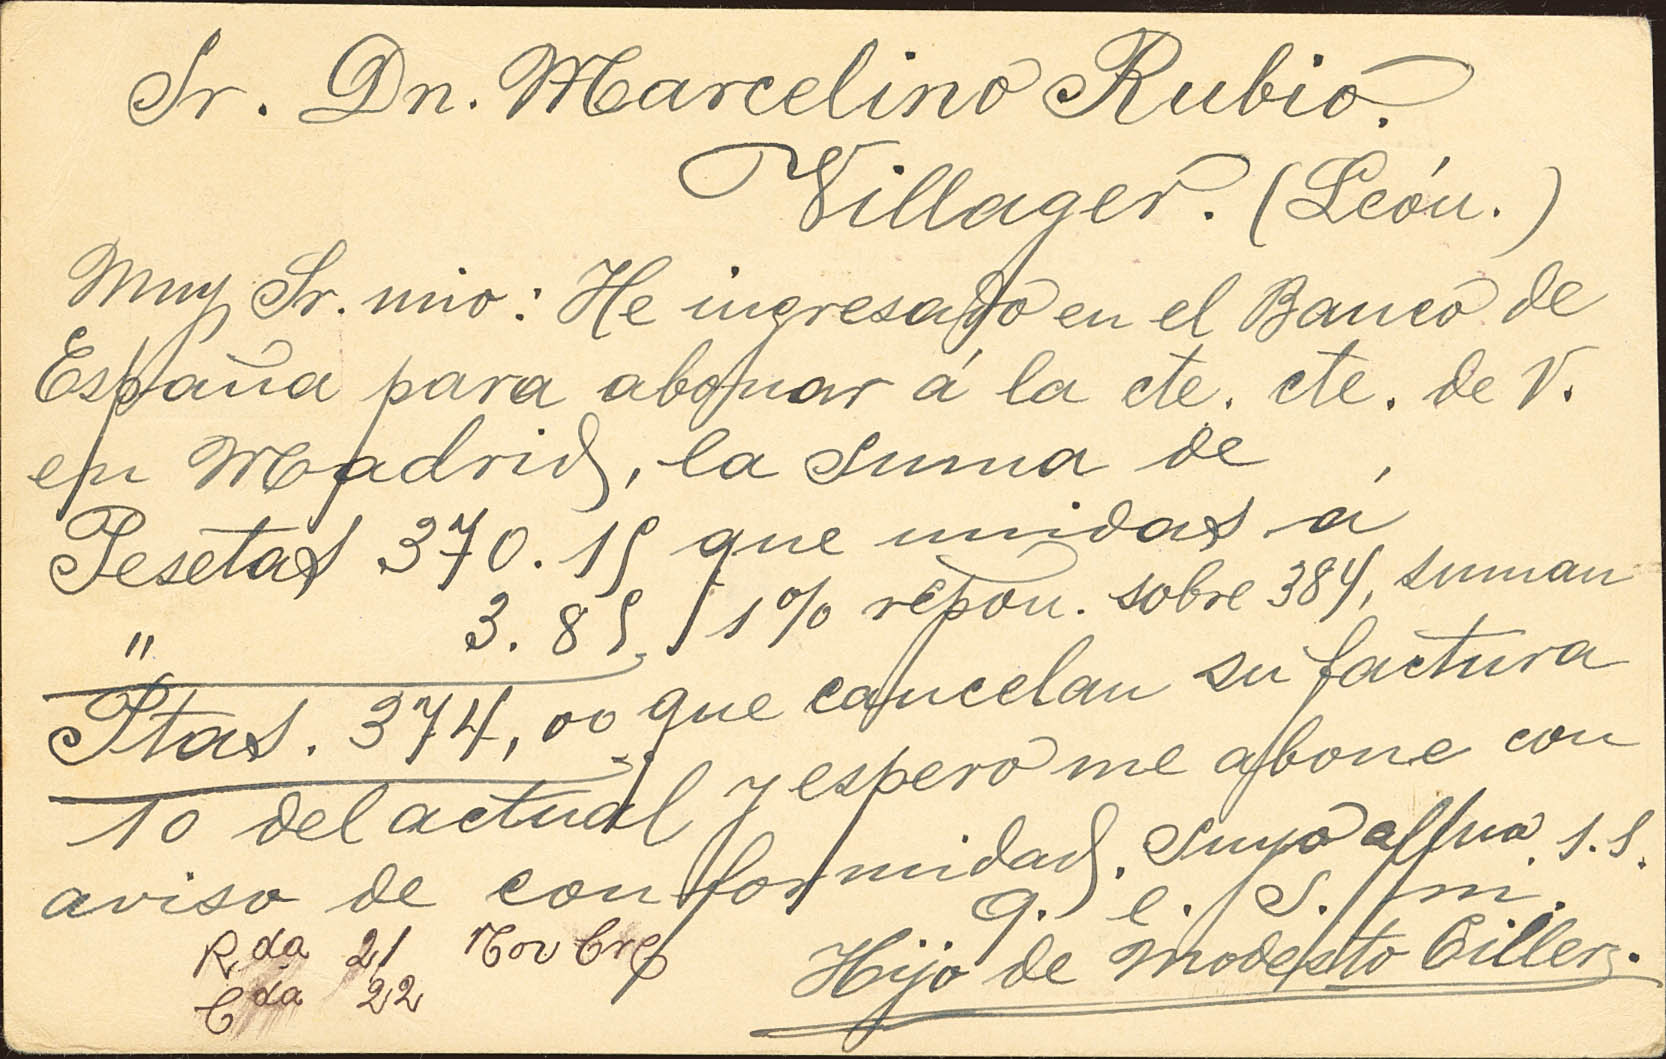 Sr. Dn. Marcelino Rubio.
Villager. (León.)
Muy Sr. mio: He ingresado en el Banco de
España para abonar á la cte. cte. de V.
en Madrid, la suma de
Pesetas 370.15 que unidas á
" 3.85 1% repon. sobre 384, suman
Ptas. 374,00 que cancelan su factura
10 del actual y espero me abone con
aviso de conformidad. Suyo affmo. s.s.
q. e. s. m.
Hijo de Modesto
Rda 21 Novbre
Cda 22